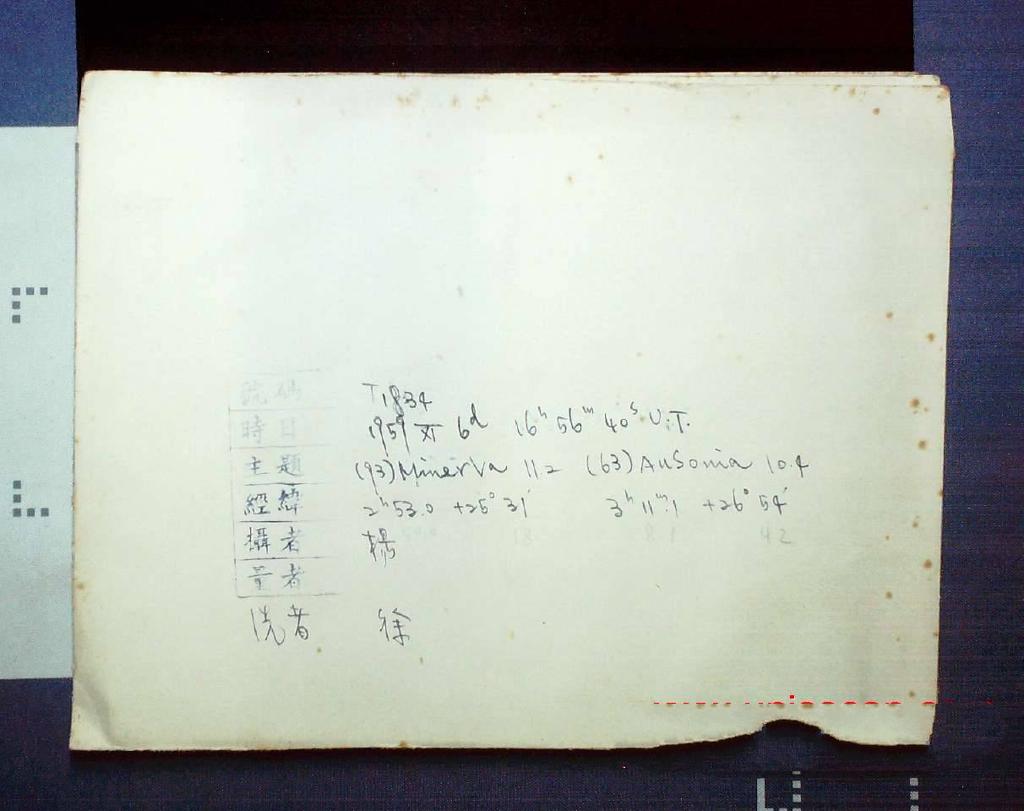 號碼 T1834
時日 1959 XI 6d 16h 56m 40s U.T.
主題 (93) Minerva 11.2 (63) Ausonia 10.4
經緯 2h 53.0 +25° 31′ 3h 11m.1 +26° 54′
攝者 楊
量者
洗者 徐